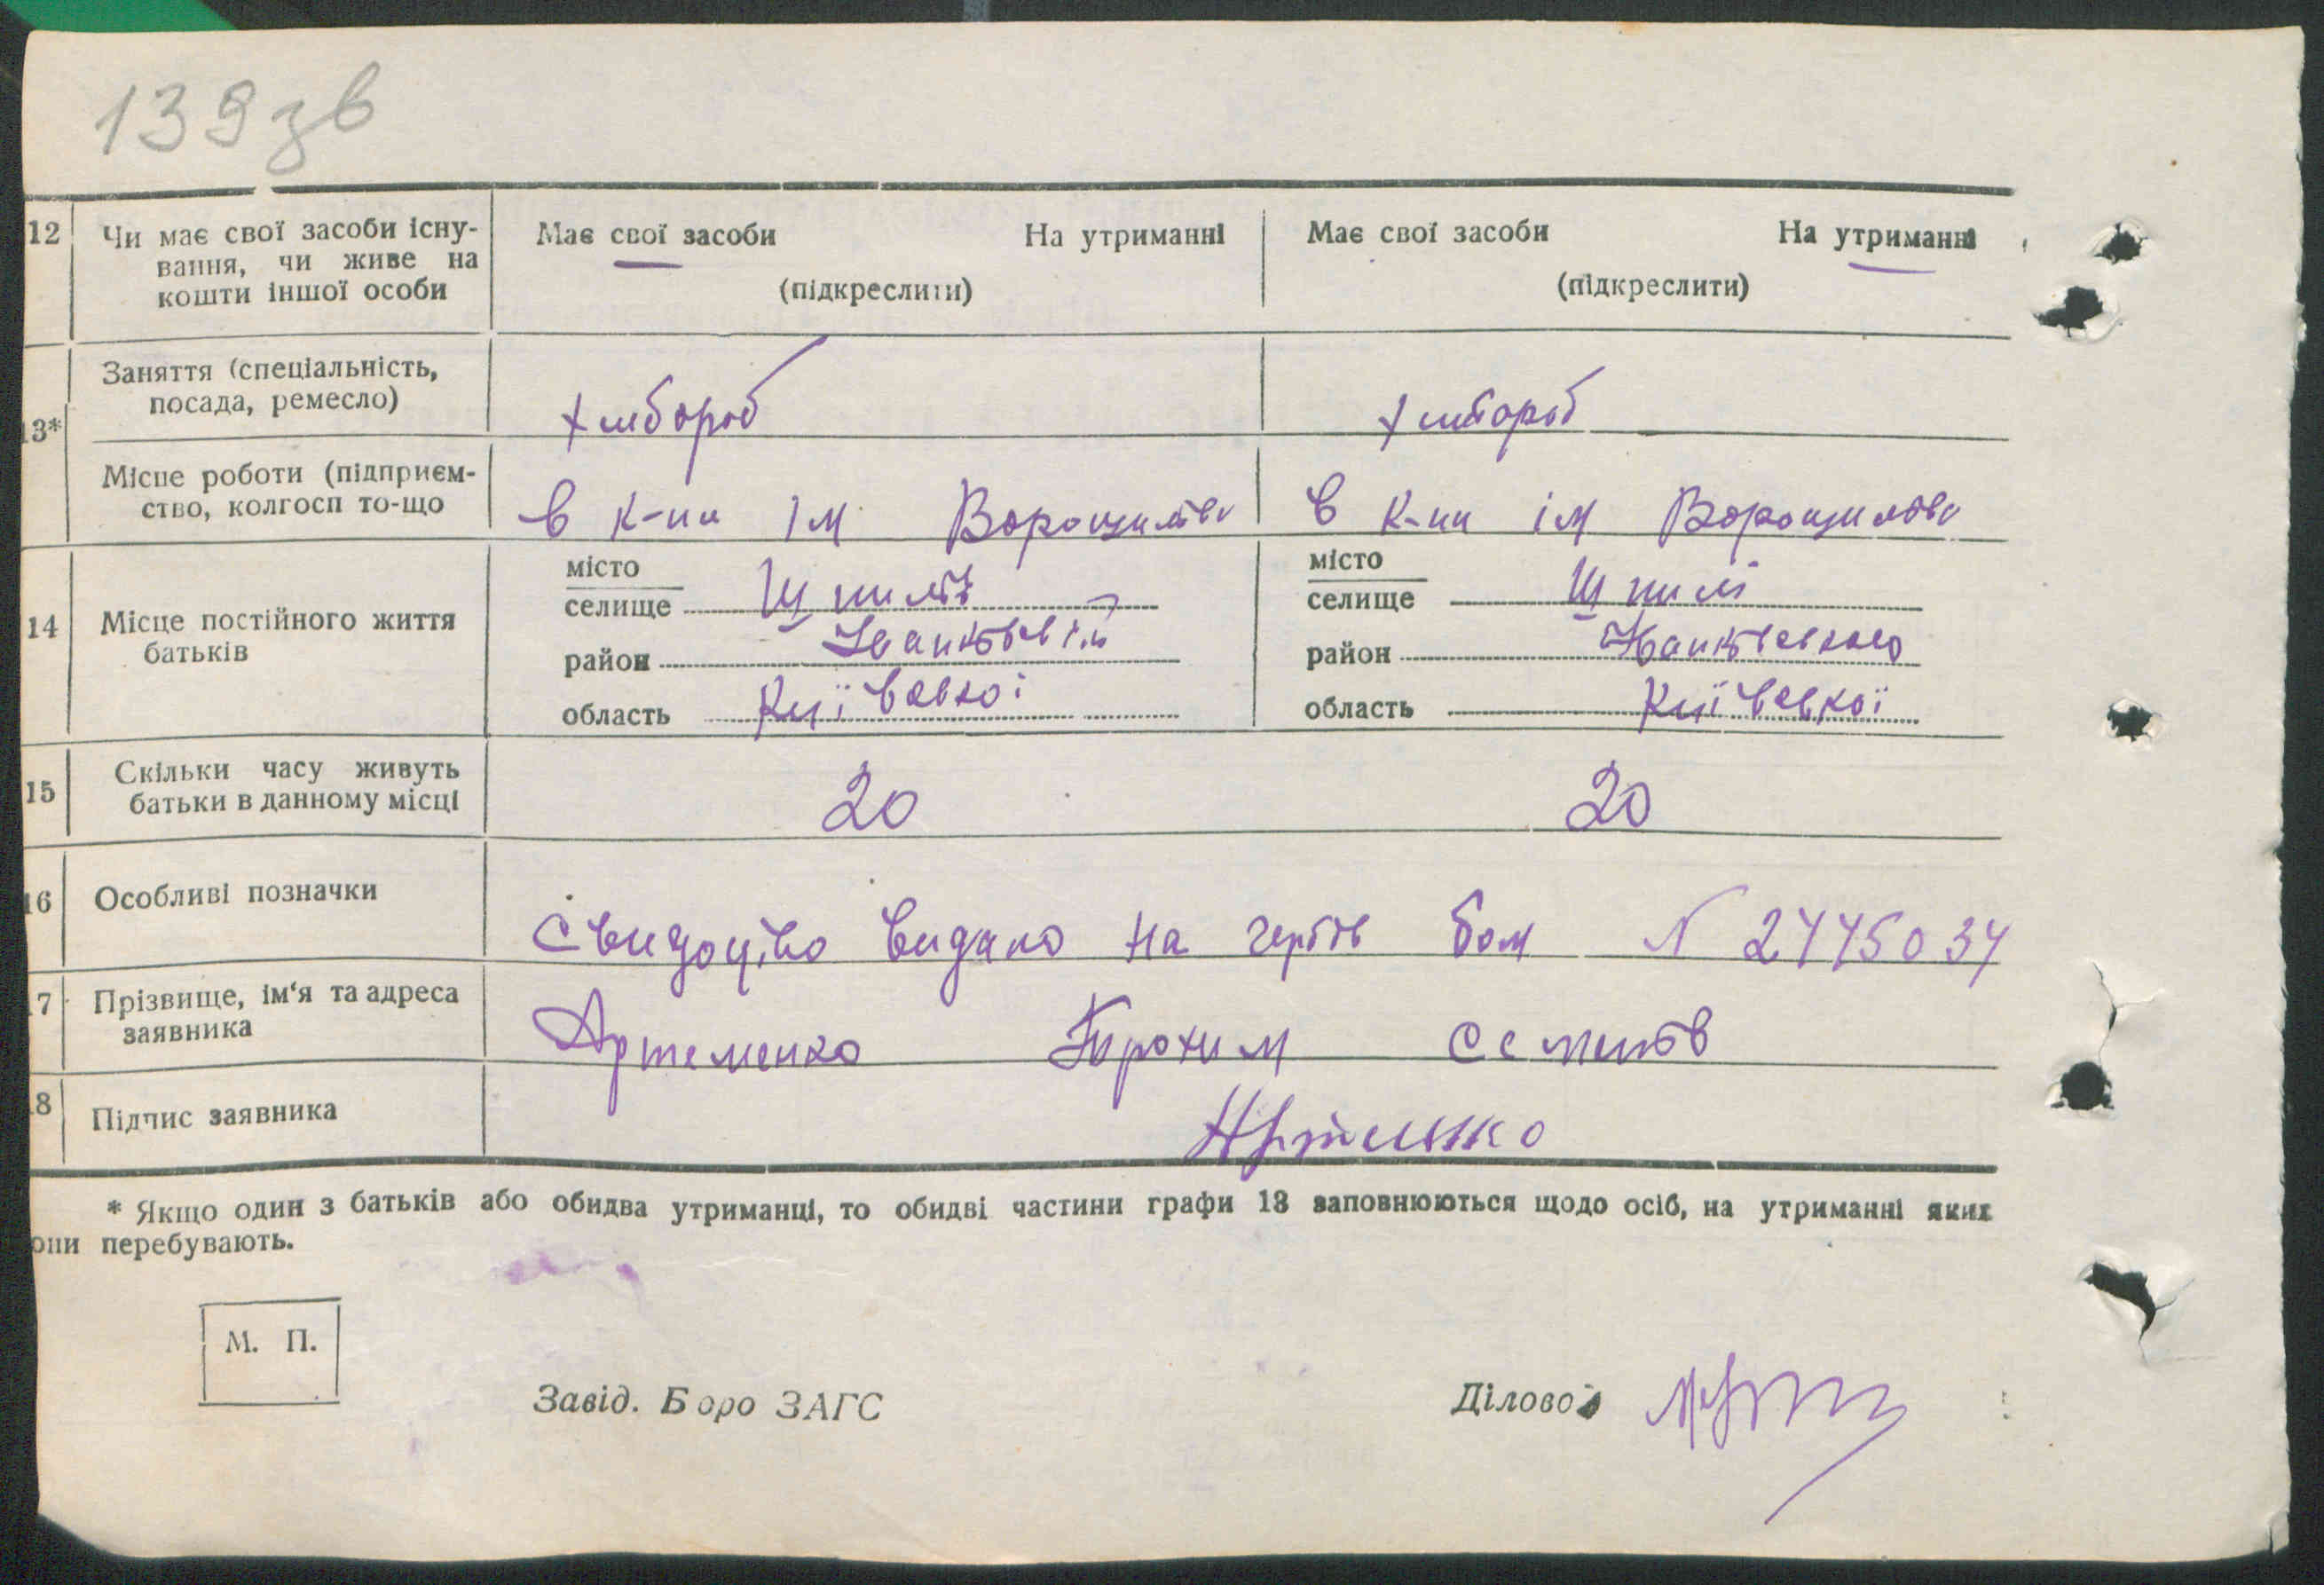 139зв
12 Чи має свої засоби існу- Має свої засоби На утриманні Має свої засоби На утриманні
вання, чи живе на
кошти іншої особи (підкреслити) (підкреслити)
Заняття (спеціальність,
посада, ремесло) хлібороб хлібороб
13*
Місце роботи (підприєм-
ство, колгосп то-що в к-пи ім Ворошилова в к-пи ім Ворошилова
місто місто
селище Шпилів селище Шпилі
14 Місце постійного життя
батьків
район район
область Київської область Київської
15 Скільки часу живуть
батьки в данному місці 20 20
16 Особливі позначки
видано на гербів бом N 2445034
17 Прізвище, ім‘я та адреса
заявника Артеменко Трохим Семенов
18 Підпис заявника Артеменко
* Якщо один з батьків або обидва утриманці, то обидві частини графи 13 заповнюються щодо осіб, на утриманні яких
они перебувають.
М. П.
Завід. Бюро ЗАГС Діловод